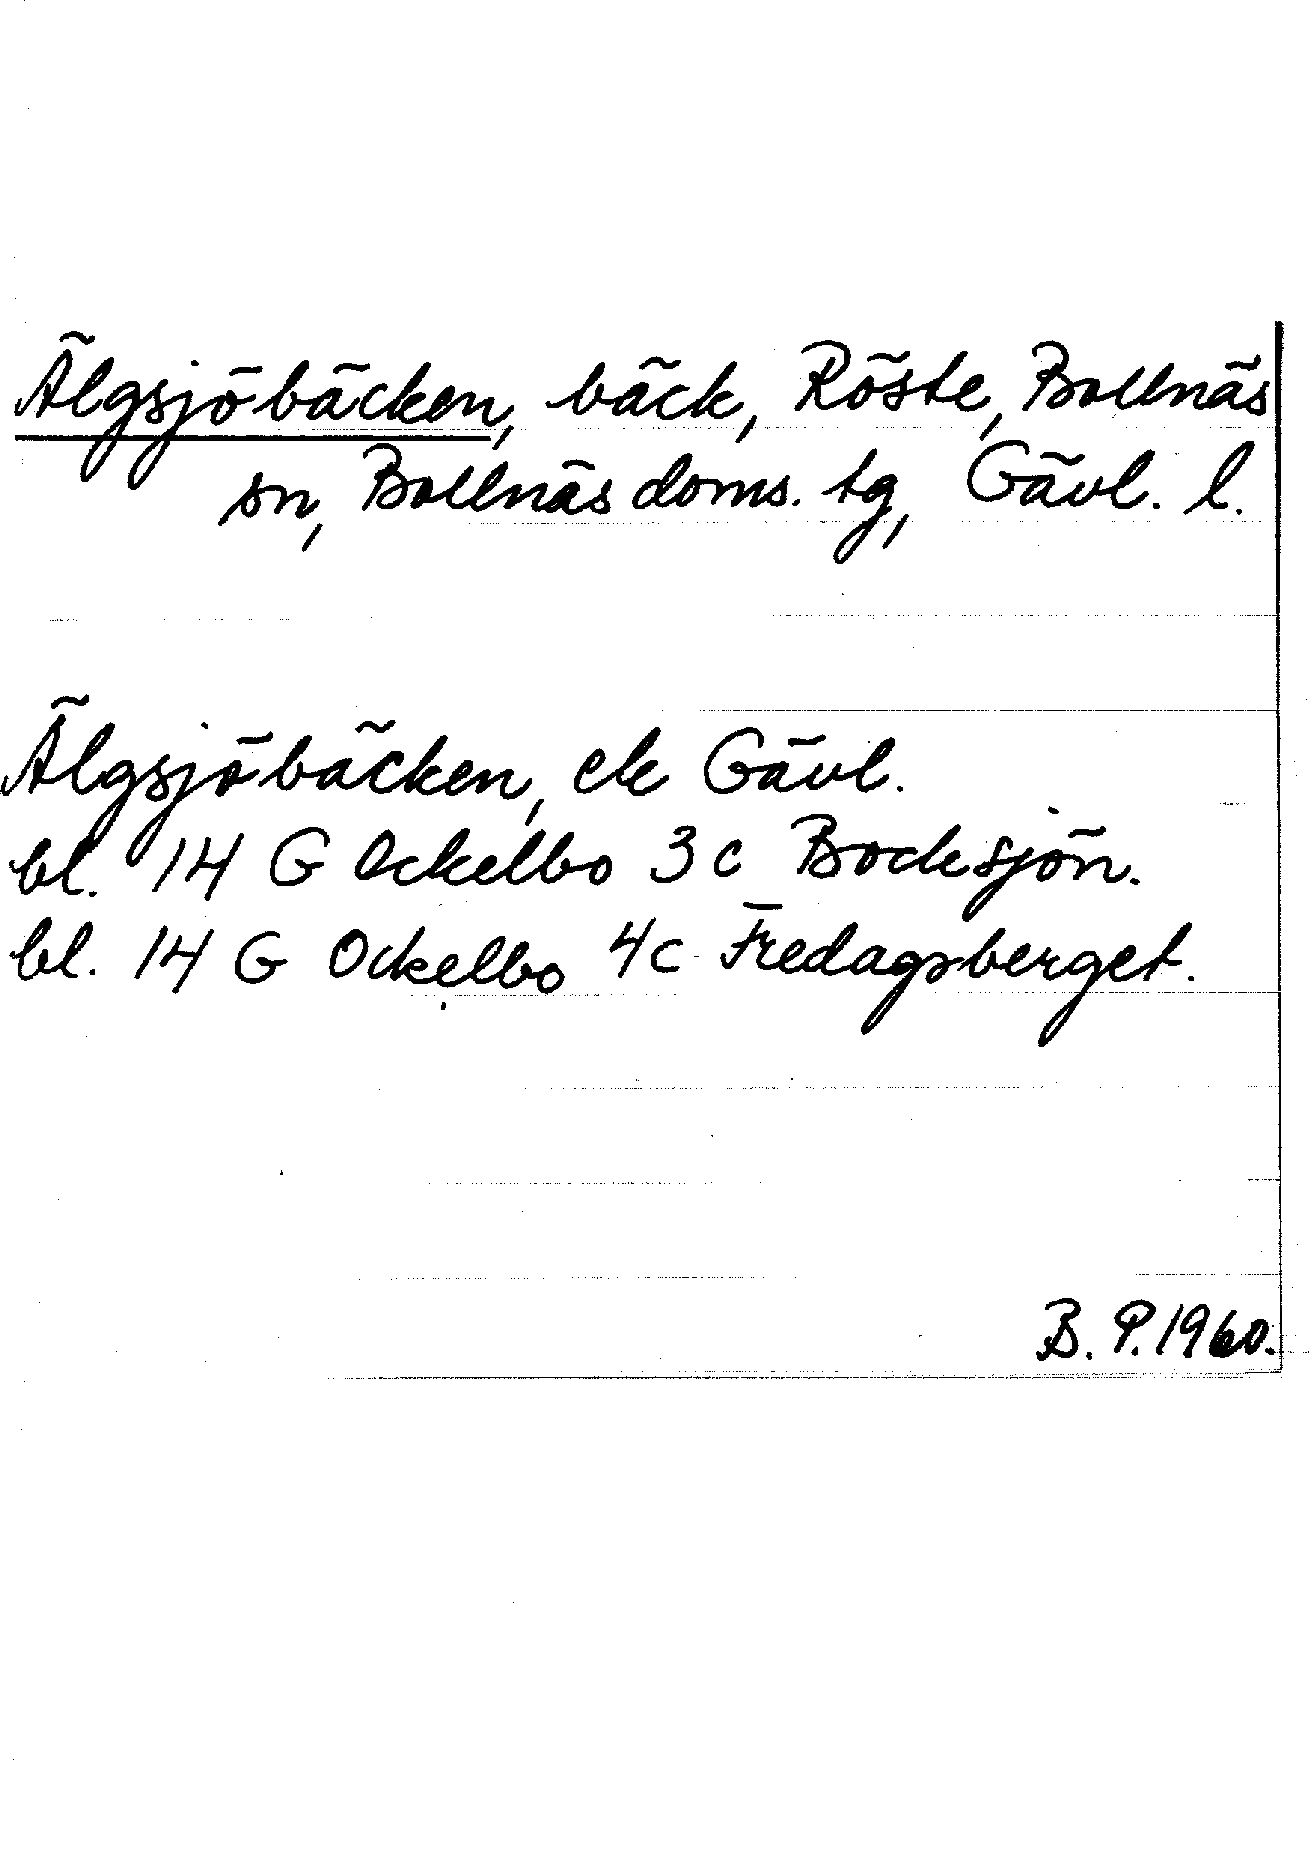 Älgsjöbäcken, bäck, Röste, Bollnäs
sn, Bollnäs doms. tg, Gävl. l.
Älgsjöbäcken, ek Gävl.
bl. 14 G Ockelbo 3 c Bocksjön.
bl. 14 G Ockelbo 4c Fredagsberget.
B. P. 1960.